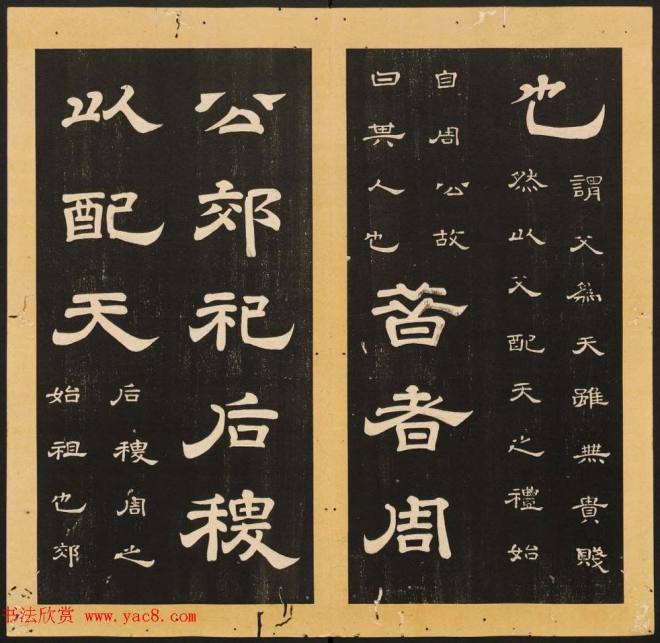 也
謂父為天雖無貴賤
然以父配天之禮始
自周公故
曰其人也
昔者周
公郊祀后稷
以配天
后稷周之
始祖也郊
书法欣赏 www.yac8.com